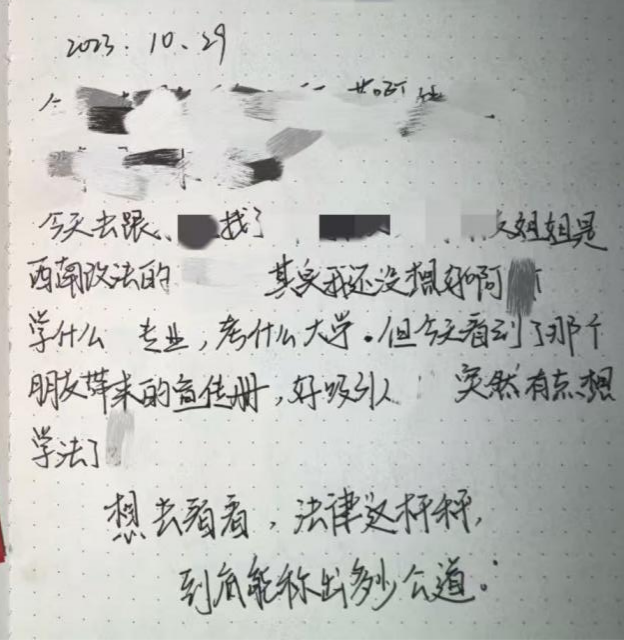 2023.10.29
今天去跟 找了 姐姐是
西南政法的 其实我还没想好啊
学什么 专业，考什么大学。但今天看到了那个
朋友带来的宣传册，好吸引人 突然有点想
学法了
想去看看，法律这杆秤，
到底能称出多少公道。